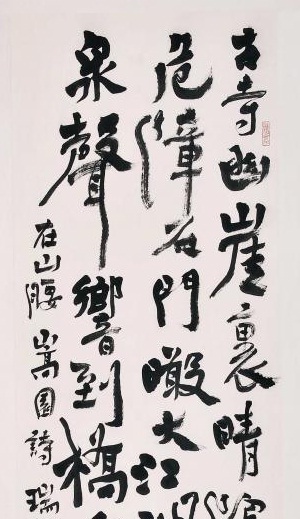 古寺幽崖裏晴
危障石門瞰大江
泉聲響到橋
在山腰嵩園詩瑞